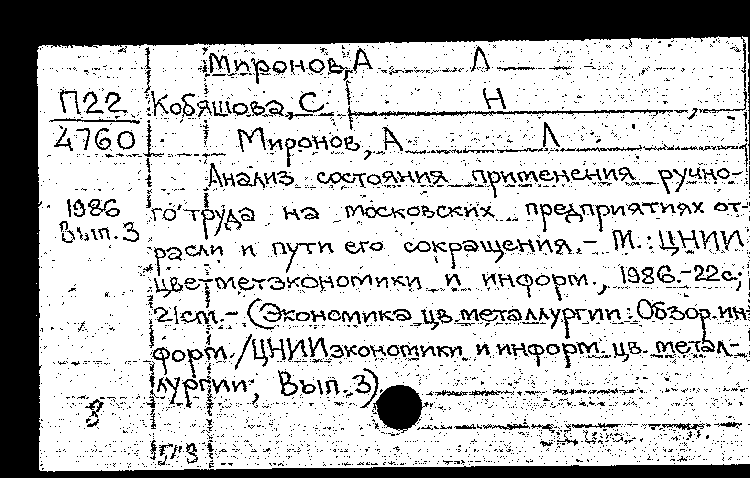 Миронов, А Л
П22 Кобяшова, С Н ,
4760 Миронов, А Л
Анализ состояния применения ручно-
1986 го труда на московских предприятиях от-
Вып. 3 расли и пути его сокращения. - М.: ЦНИИ
цветметэкономики и информ., 1986.-22с;
21см. - (Экономика цв. металлургии: Обзор. ин
форм. /ЦНИИэкономики и информ. цв. метал-
лургии; Вып. 3)
8